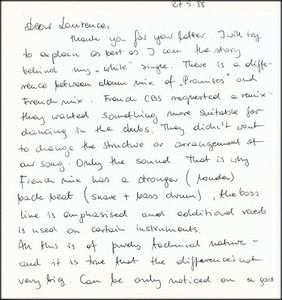 27.5.88
Dear Laurence,
Thank you for your letter. I will try
to explain as best as I can the story
behind my "white" single. There is a diffe-
rence between album mix of "Promises" and
French mix. French CBS requested a remix -
they wanted something more suitable for
dancing in the clubs. They didn't want
to change the structure or arrangement of
our song. Only the sound that is why
French mix has a stronger (louder)
back beat (snare + bass drum), the bass
line is emphasised and additional reverb
is used on certain instruments.
All this is of purely technical nature -
and it is true that the difference is not
very big. Can be only noticed on a good